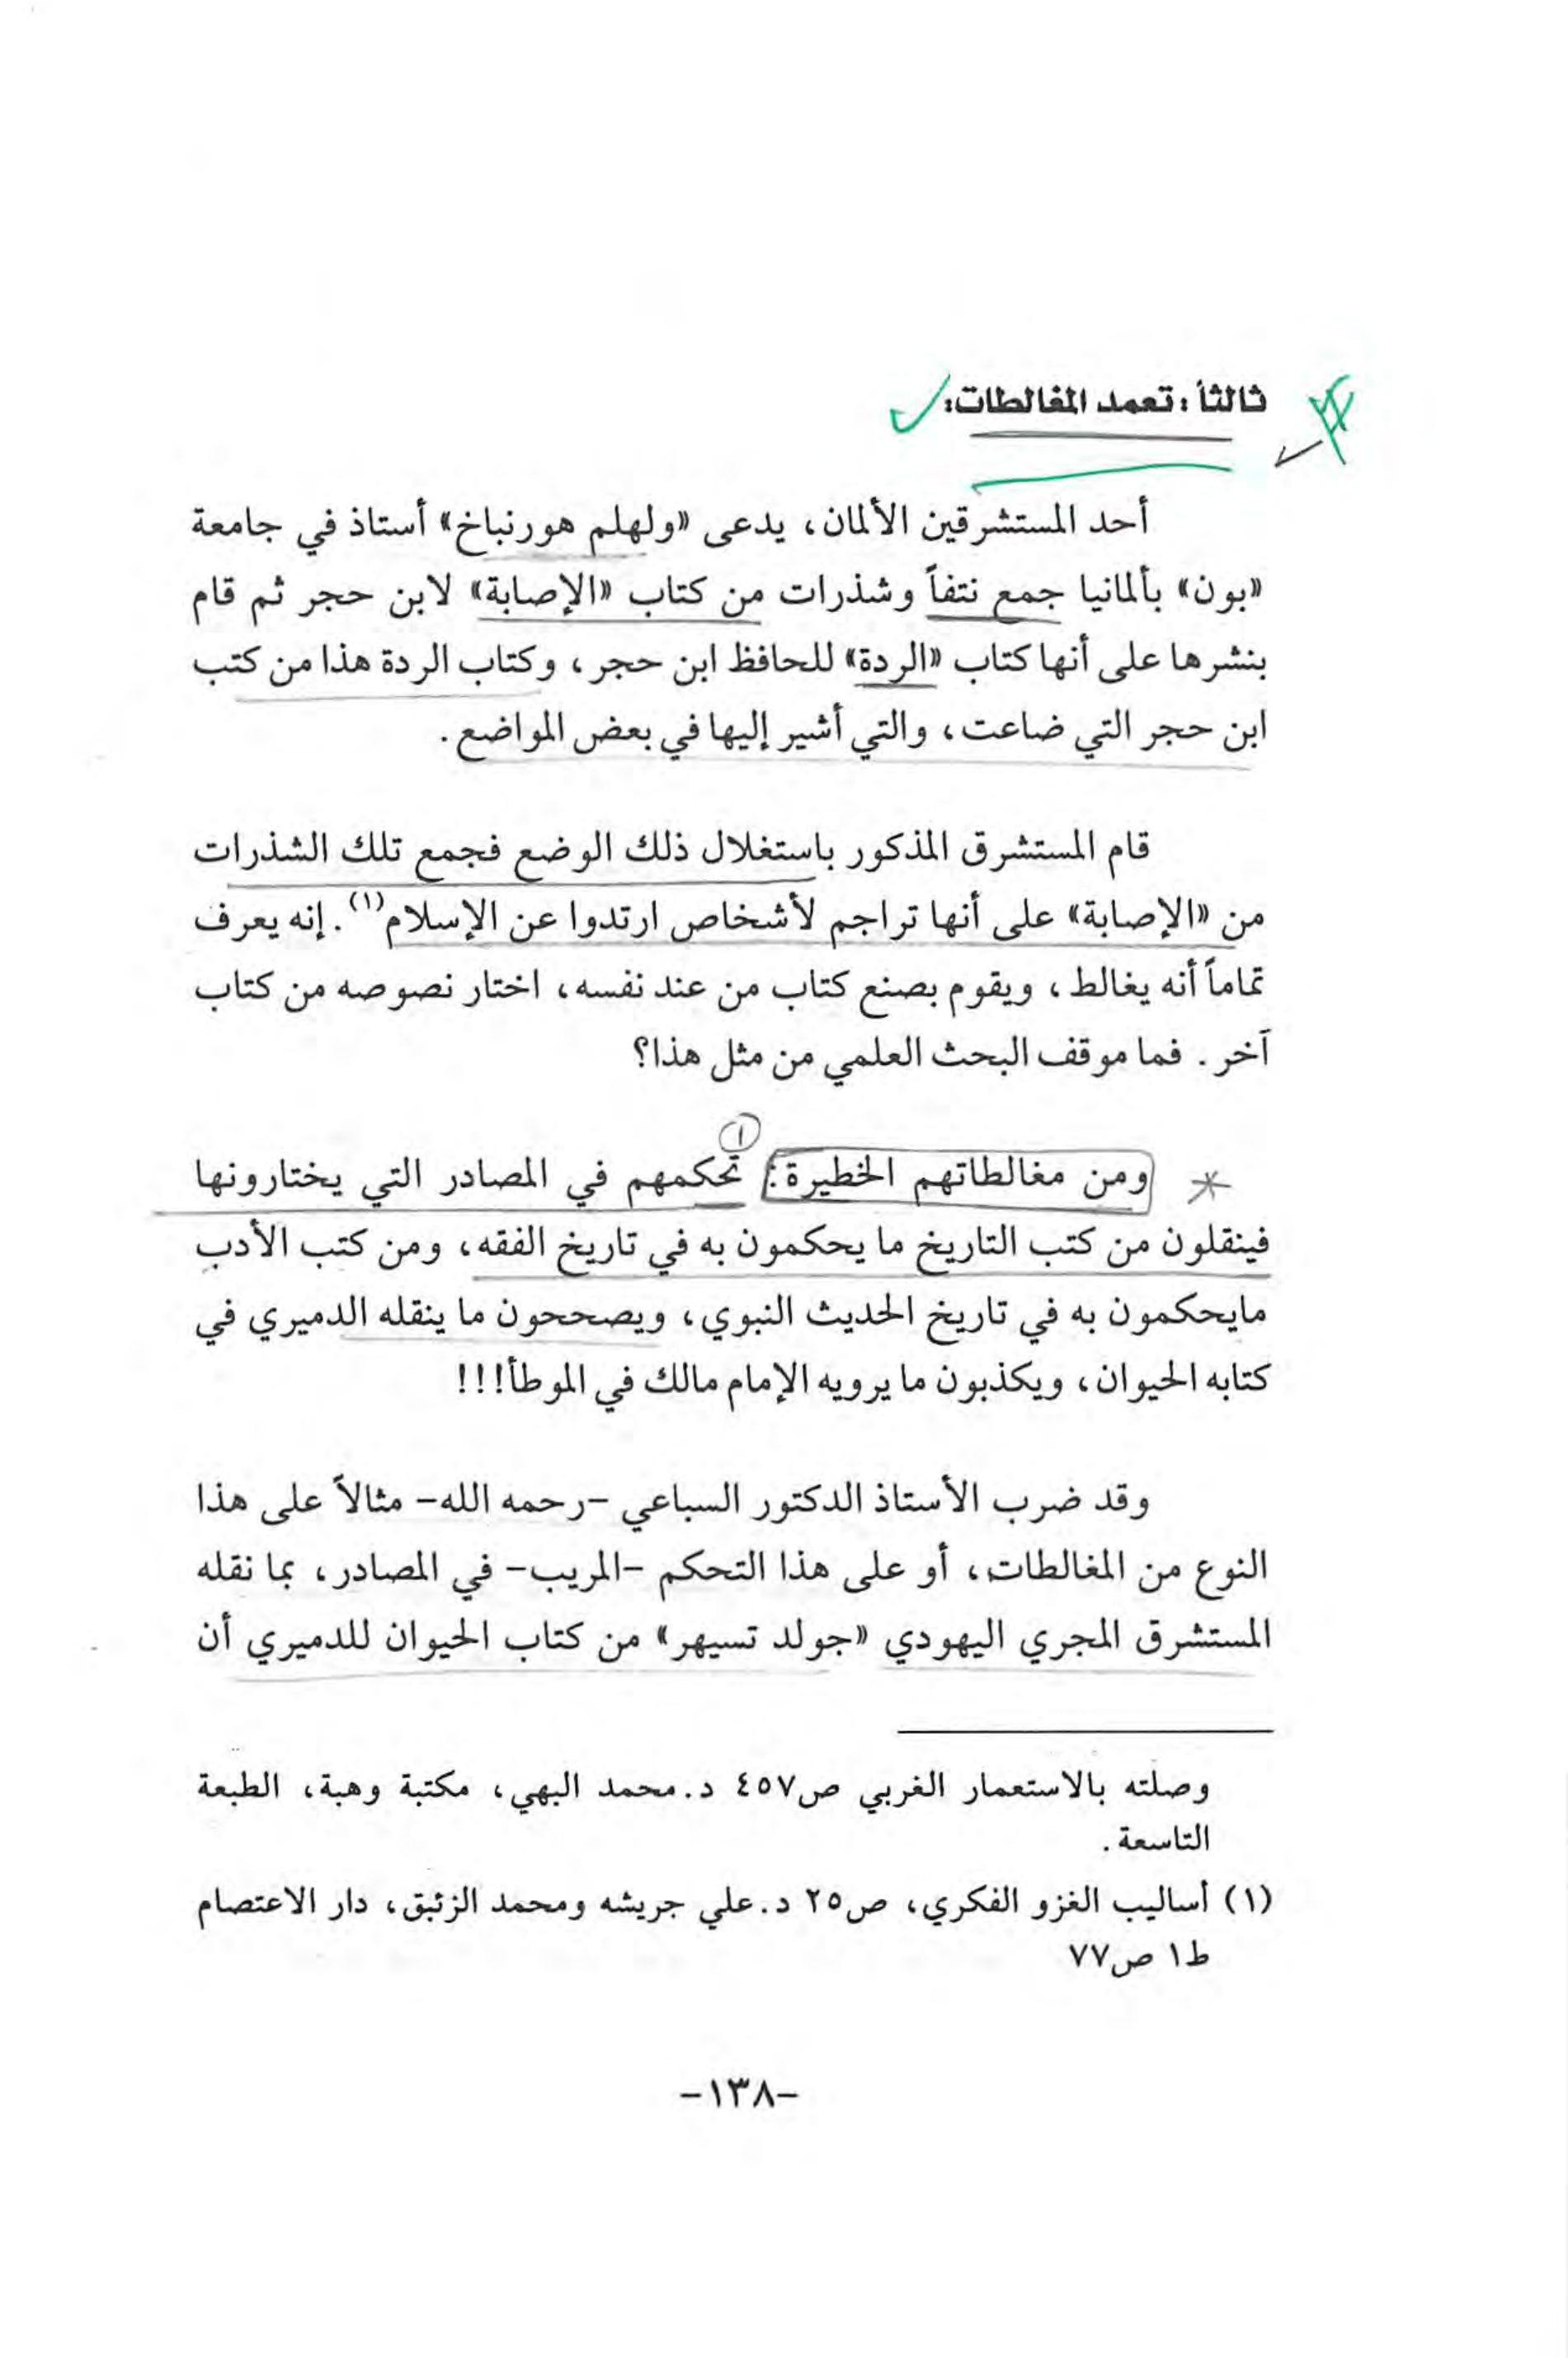 ثالثاً : تعمد المغالطات:
أحد المستشرقين الألمان، يدعى «ولهلم هورنباخ» أستاذ في جامعة
«بون» بألمانيا جمع نتفاً وشذرات من كتاب «الإصابة» لابن حجر ثم قام
بنشرها على أنها كتاب «الردة» للحافظ ابن حجر، وكتاب الردة هذا من كتب
ابن حجر التي ضاعت، والتي أشير إليها في بعض المواضع.
قام المستشرق المذكور باستغلال ذلك الوضع فجمع تلك الشذرات
من «الإصابة» على أنها تراجم لأشخاص ارتدوا عن الإسلام(١). إنه يعرف
تماماً أنه يغالط، ويقوم بصنع كتاب من عند نفسه، اختار نصوصه من كتاب
آخر. فما موقف البحث العلمي من مثل هذا؟
١
* ومن مغالطاتهم الخطيرة: تحكمهم في المصادر التي يختارونها
فينقلون من كتب التاريخ ما يحكمون به في تاريخ الفقه، ومن كتب الأدب
مايحكمون به في تاريخ الحديث النبوي، ويصححون ما ينقله الدميري في
كتابه الحيوان، ويكذبون ما يرويه الإمام مالك في الموطأ!!!
وقد ضرب الأستاذ الدكتور السباعي -رحمه الله- مثالاً على هذا
النوع من المغالطات، أو على هذا التحكم -المريب- في المصادر، بما نقله
المستشرق المجري اليهودي «جولد تسيهر» من كتاب الحيوان للدميري أن
وصلته بالاستعمار الغربي ص٤٥٧ د.محمد البهي، مكتبة وهبة، الطبعة
التاسعة.
(١) أساليب الغزو الفكري، ص٢٥ د.علي جريشه ومحمد الزئبق، دار الاعتصام
ط١ ص٧٧
-١٣٨-